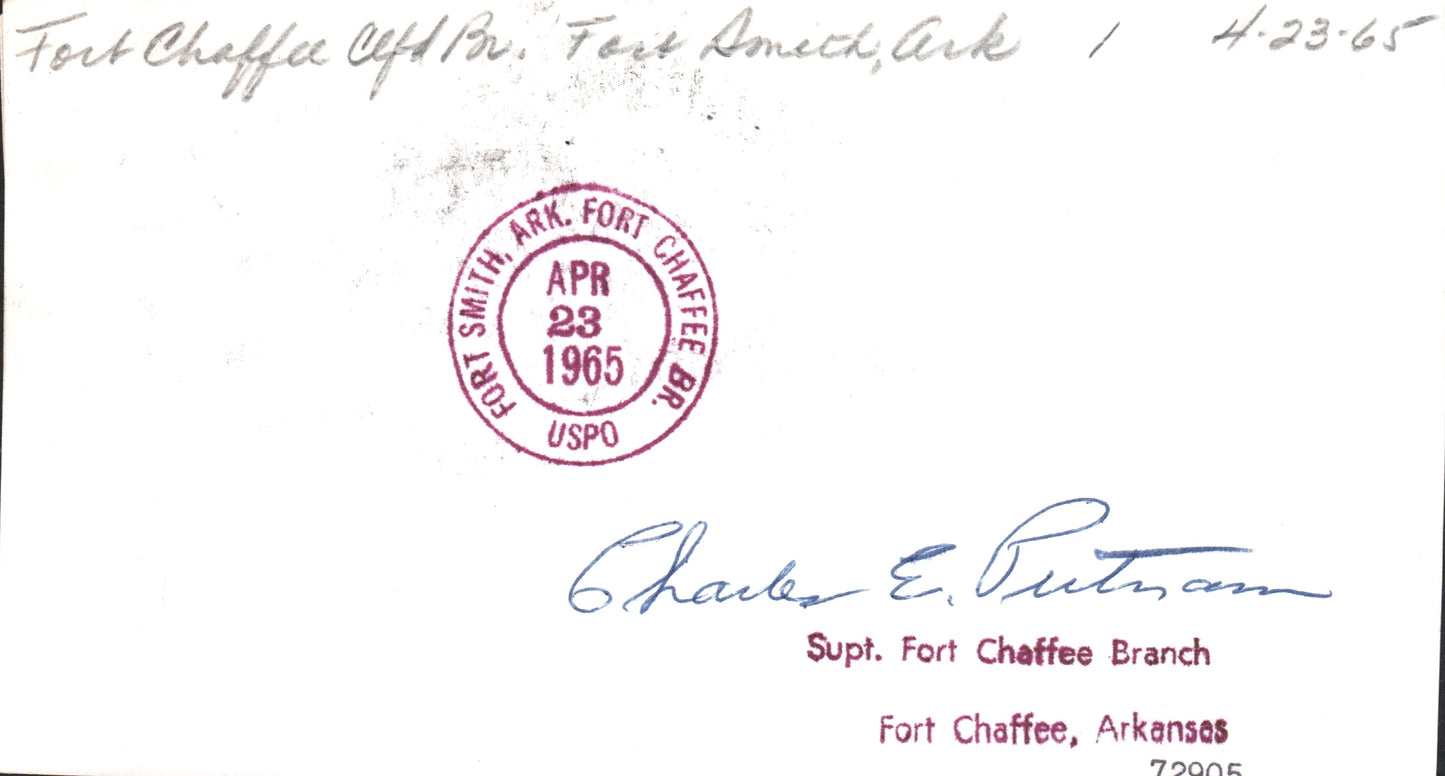 Fort Chaffee Clfd Br. Fort Smith, Ark 1 4-23-65
FORT SMITH, ARK. FORT CHAFFEE BR.
APR
23
1965
USPO
Charles E. Putnam
Supt. Fort Chaffee Branch
Fort Chaffee, Arkansas
72905